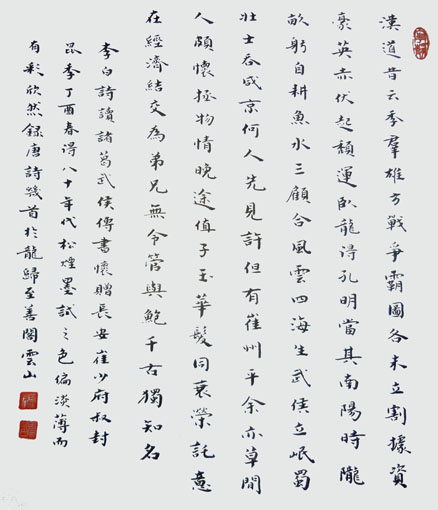 漢道昔云季羣雄方戰爭霸圖各未立割據資
豪英赤伏起頹運臥龍得孔明當其南陽時隴
畝躬自耕魚水三顧合風雲四海生武侯立岷蜀
壯士吞咸京何人先見許但有崔州平余亦草間
人頗懷拯物情晚途值子玉華髮同衰榮託意
在經濟結交為弟兄無令管與鮑千古獨知名
李白詩讀諸葛武侯傳書懷贈長安崔少府叔封
昆季丁酉春得八十年代松煙墨試之色偏淡薄而
有彩欣然錄唐詩幾首於龍歸至善閣雲山